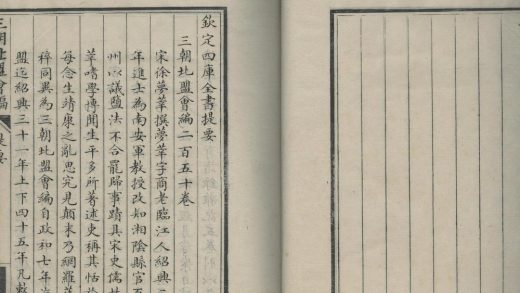 欽定四庫全書提要
三朝北盟會編二百五十卷
宋徐夢莘撰夢莘字商老臨江人紹興二
年進士為南安軍教授改知湘陰縣官至
州 議鹽法不合罷歸事蹟具宋史儒林
莘嗜學博聞生平多所著述史稱其恬於
每念生靖康之亂思究見顛末乃網羅
稡同異為三朝北盟會編自政和七年
盟迄紹興三十一年上下四十五年凡敕
三朝北盟會編
提要